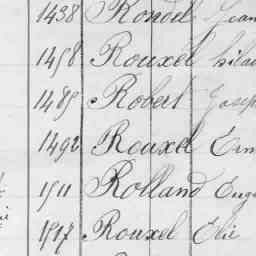 1438 Rondel Jean
1458 Rouxel
1489 Robert Joseph
1492 Rouxel Ern
1511 Rolland Eug
1517 Rouxel Elie